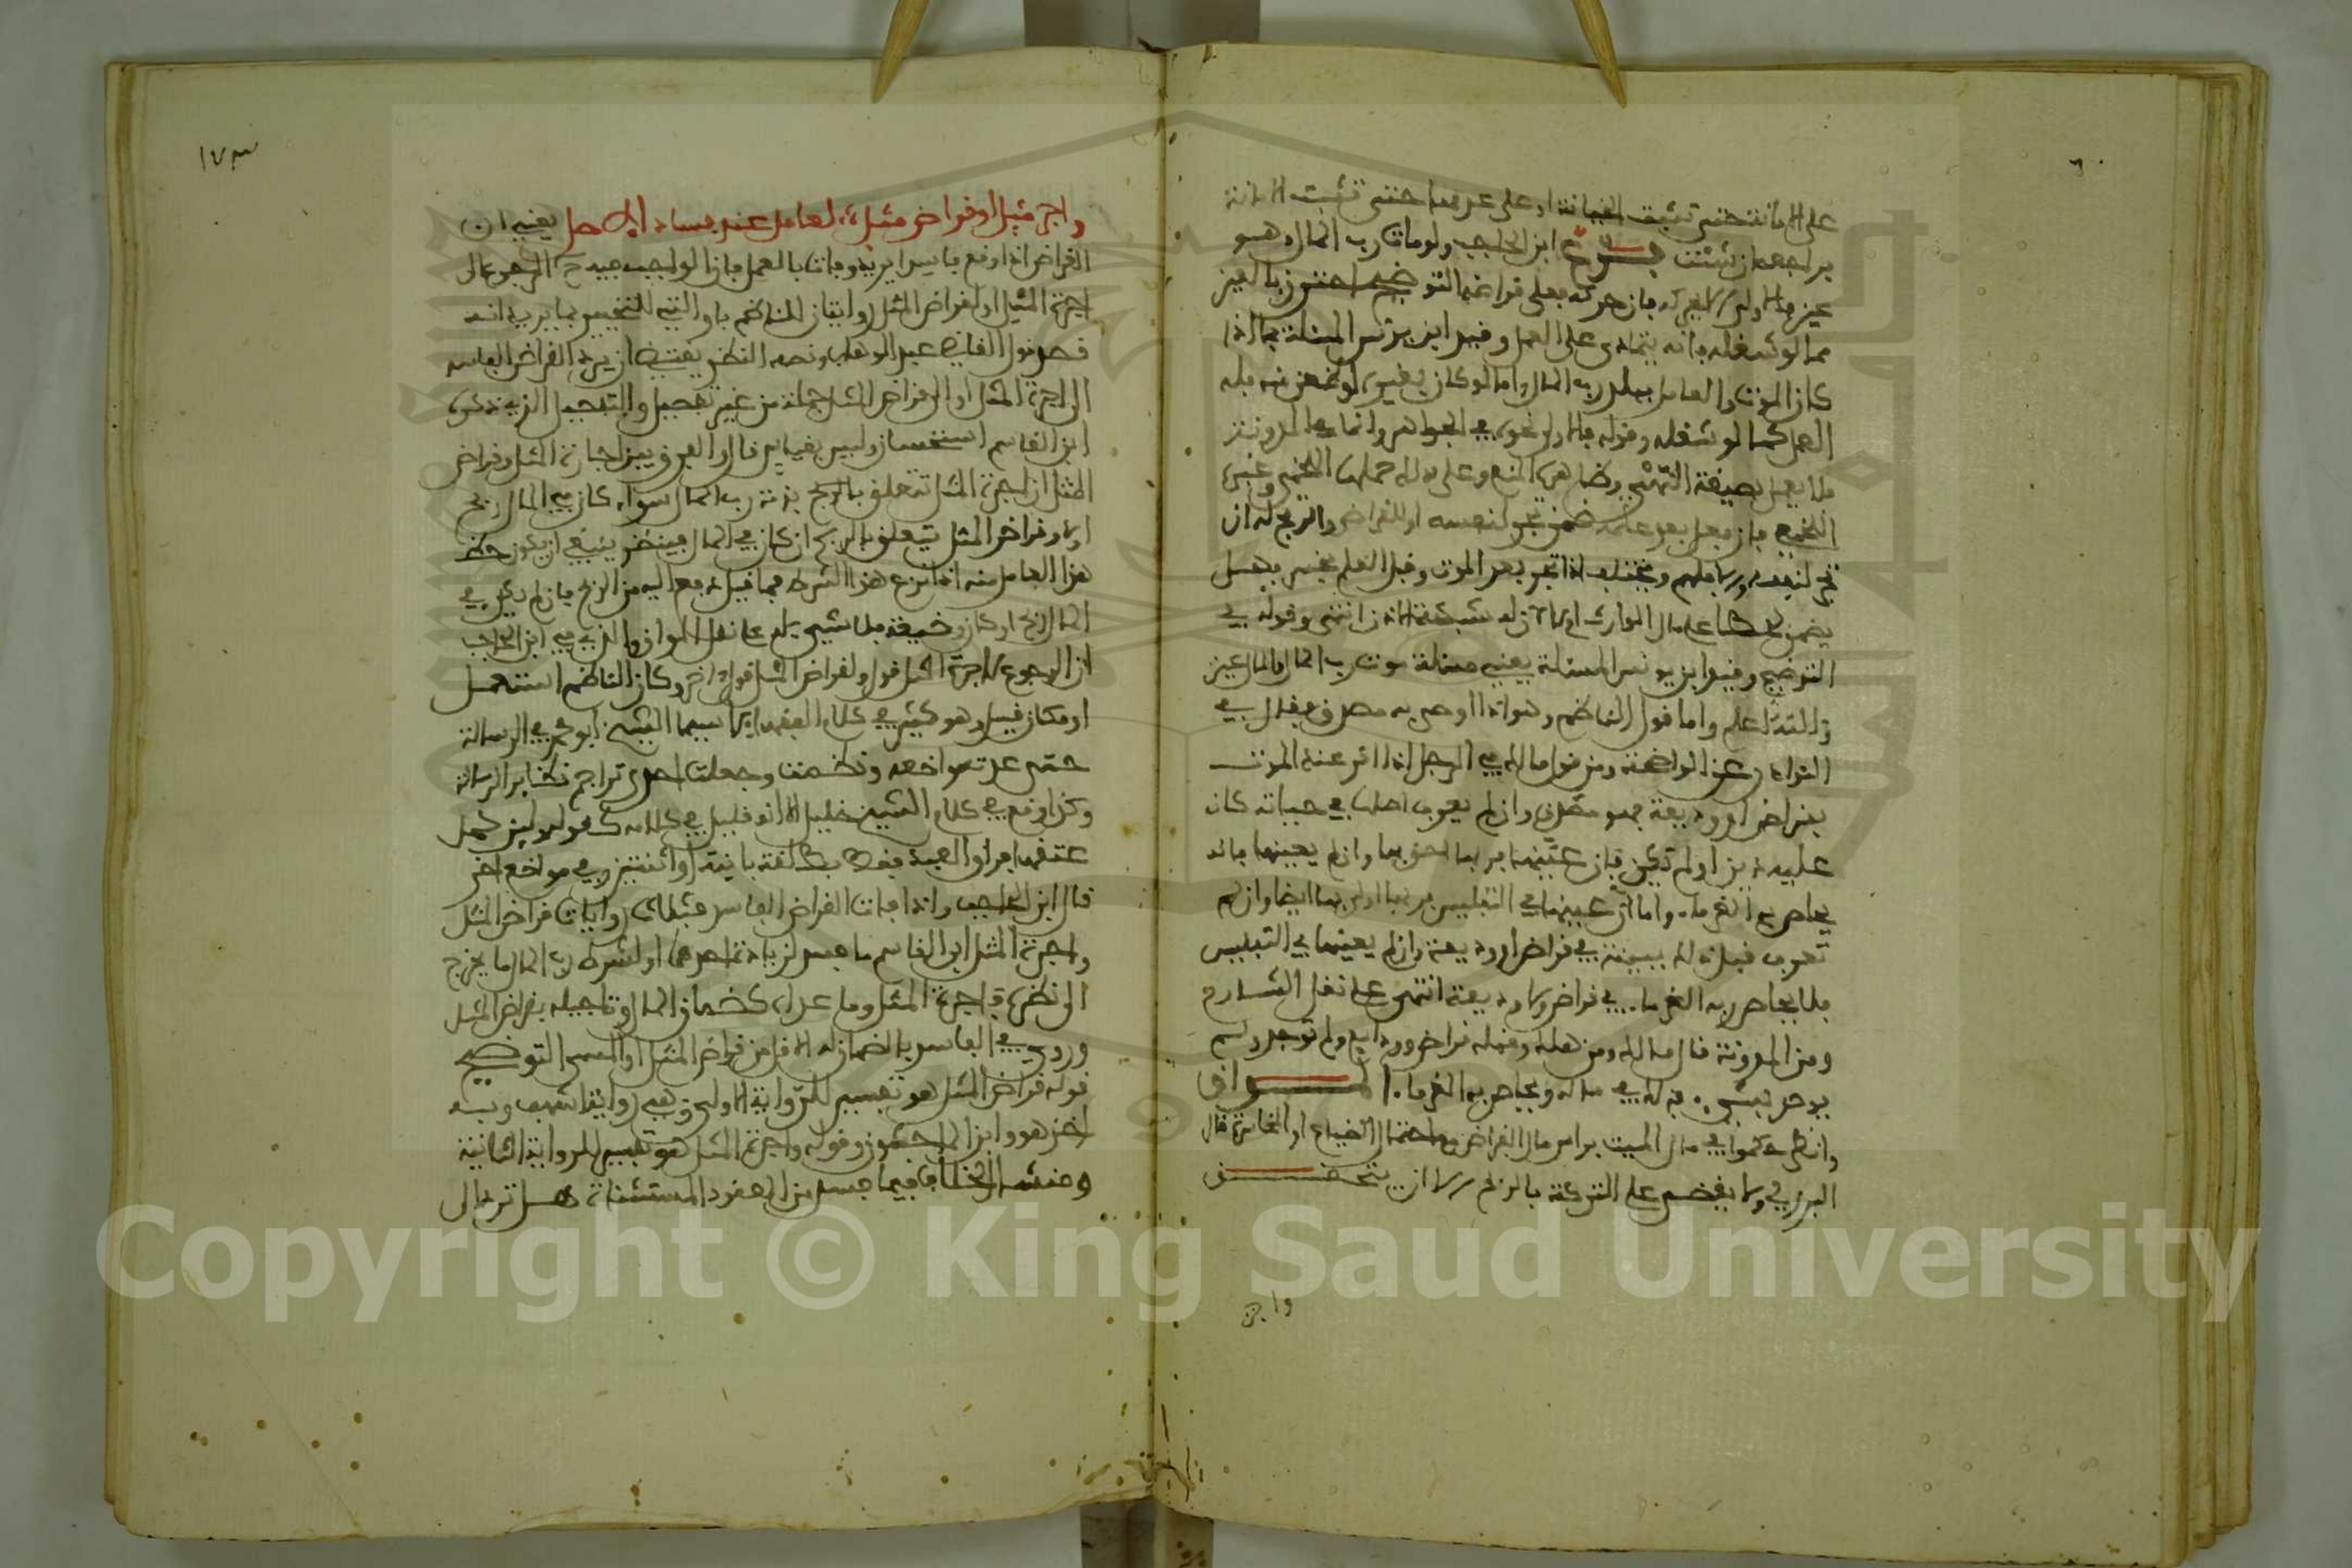 على الامانة حتى تثبت الخيانة او على عدمها حتى تثبت الامانة
براجعه ان شئت فرع ابن الحاجب ولو مات رب المال وهو
عين فالاولى ان لا يحركه فان حركه فعلى قراضه التوضيح احترز بالعين
مما لو شغله فانه يتمادى على العمل وقيد ابن يونس المسئلة بما اذا
كان الموت والعامل ببلد رب المال واما لو كان بغيره او ظعن منه فله
العمل كما لو شغله وقوله فالاولى نحوه في الجواهر وانما في المدونة
فلا يعمل بصيغة النهي وظاهره المنع وعلى ذلك حملها اللخمي وغيره
اللخمي فان فعل بعد علمه ضمن تجر لنفسه او للقراض والربح له ان
تجر لنفسه
يضمن خطا على مال الوارث او لا لان له شبهة الاذن انتهى وقوله في
التوضيح وقيد ابن يونس المسئلة يعني مسئلة موت رب المال والمال عين
والله اعلم واما قول الناظم وهو اذا اوصى به مصدق فقال في
النوادر عن الواضحة ومن قول مالك في الرجل اذا اقر عند الموت
بقراض او وديعة فهو مصدق وان لم يعرف اصلها في حياته كان
عليه دين او لم يكن فان عينهما فربهما احق بهما وان لم يعينهما فانه
يحاصص الغرماء واما ان عينهما في التفليس فربهما اولى بهما ايضا وان لم
تعرف قبل ذلك ببينة في قراض او وديعة وان لم يعينهما في التفليس
فلا يحاصص ربه الغرماء في قراض ولا وديعة انتهى على نقل الشارح
ومن المدونة قال مالك ومن هلك وقبله قراض وودائع ولم توجد ولم
يوص بشيء فذلك في ماله ويحاص به الغرماء المواق
وانظر حكموا في مال الميت براس مال القراض مع احتمال الضياع او الخسارة قال
البرزلي ولا يقضى على التركة بالربح الا ان يتحقق
واجر
١٧٣
واجر مثل او قراض مثل لعامل عند فساد الاصل يعني ان
القراض اذا وقع فاسدا يريد وفات بالعمل فان الواجب فيه ح الرجوع الى
اجرة المثل او لقراض المثل روايتان للناظم باو التي للتخيير بما يريد انه
قصد قول القاضي عبد الوهاب ونصه النظر يقتضي ان يرد القراض الفاسد
الى اجرة المثل او الى قراض المثل جملة من غير تفصيل والتفصيل الذي ذكره
ابن القاسم استحسان وليس بقياس قال والفرق بين اجارة المثل وقراض
المثل ان اجرة المثل تتعلق بالربح بذمة رب المال سواء كان في المال ربح
او لا وقراض المثل يتعلق بالربح ان كان في المال فينظر ينبغي ان يكون حظ
هذا العامل منه اذا نزع هذا الشرط فما قيل دفع اليه من الربح فان لم يكن في
المال ربح او كان وضيعة فلا شيء له على نقل المواق والذي في ابن الحاجب
ان الرجوع لاجرة المثل قول ولقراض المثل قول اخر وكان الناظم استعمل
او مكان قيل وهو كثير في كلام الفقهاء لا سيما الشيخ ابو محمد في الرسالة
حتى عدت مواضعه ونظمت وجعلت احدى تراجم نظائر الرسالة
وكذا وقع في كلام الشيخ خليل الا انه قليل في كلامه كقوله
قال ابن الحاجب واذا فات القراض الفاسد فثلاث روايات قراض المثل
واجرة المثل ابن القاسم ما فسد لزيادة احدهما او لشرط رب المال ما يخرج
الى نظره فاجرة المثل وما عداه كضمان المال وتاجيله فقراض المثل
وروي في الفاسد بالضمان له الاقل من قراض المثل او المسمى التوضيح
قوله قراض المثل هو تفسير للرواية الاولى وهي رواية اشهب وبه
اخذ هو وابن الماجشون وقوله واجرة المثل هو تفسير للرواية الثانية
ومنشا الخلاف فيما فسد من العقود المستثناة هل ترد الى
Copyright © King Saud University